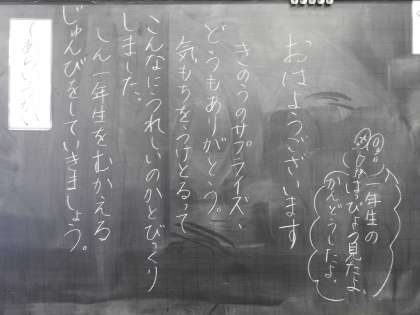 一年生の
はっぴょう見たよ、
かんどうしたよ。
おはようございます
きのうのサプライズ、
どうもありがとう。
気もちをうけとるって
こんなにうれしいのかとびっくり
しました。
しん一年生をむかえる
じゅんびをしていきましょう。